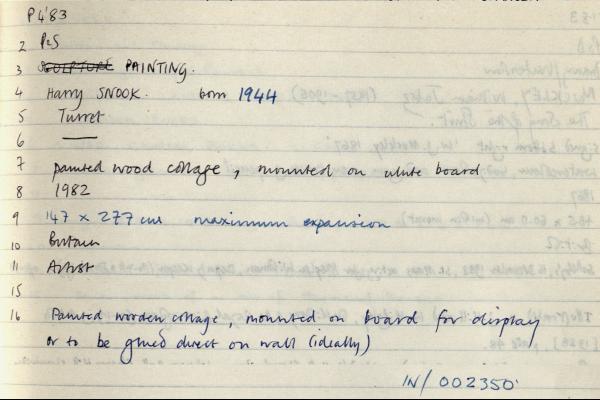 P4'83
2 P25
3 SCULPTURE PAINTING.
4 Harry SNOOK. born 1944
5 Turret
6 —
7 painted wood collage, mounted on white board
8 1982
9 147 x 277 cm maximum expansion
10 Britain
11 Artist
15
16 Painted wooden collage, mounted on board for display
or to be glued direct on wall (ideally)
IN/002350